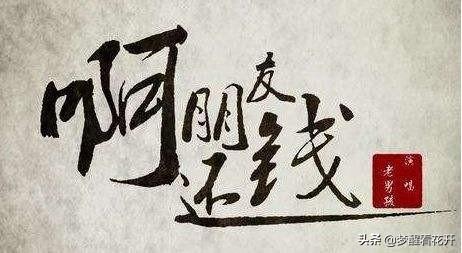 啊朋友还钱
演唱
老男孩
头条 @梦醒看花开